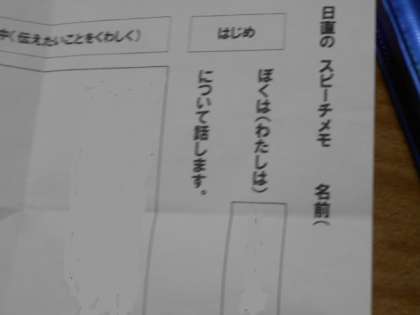 日直の スピーチメモ 名前(
はじめ
ぼくは(わたしは)
について話します。
中(伝えたいことをくわしく)